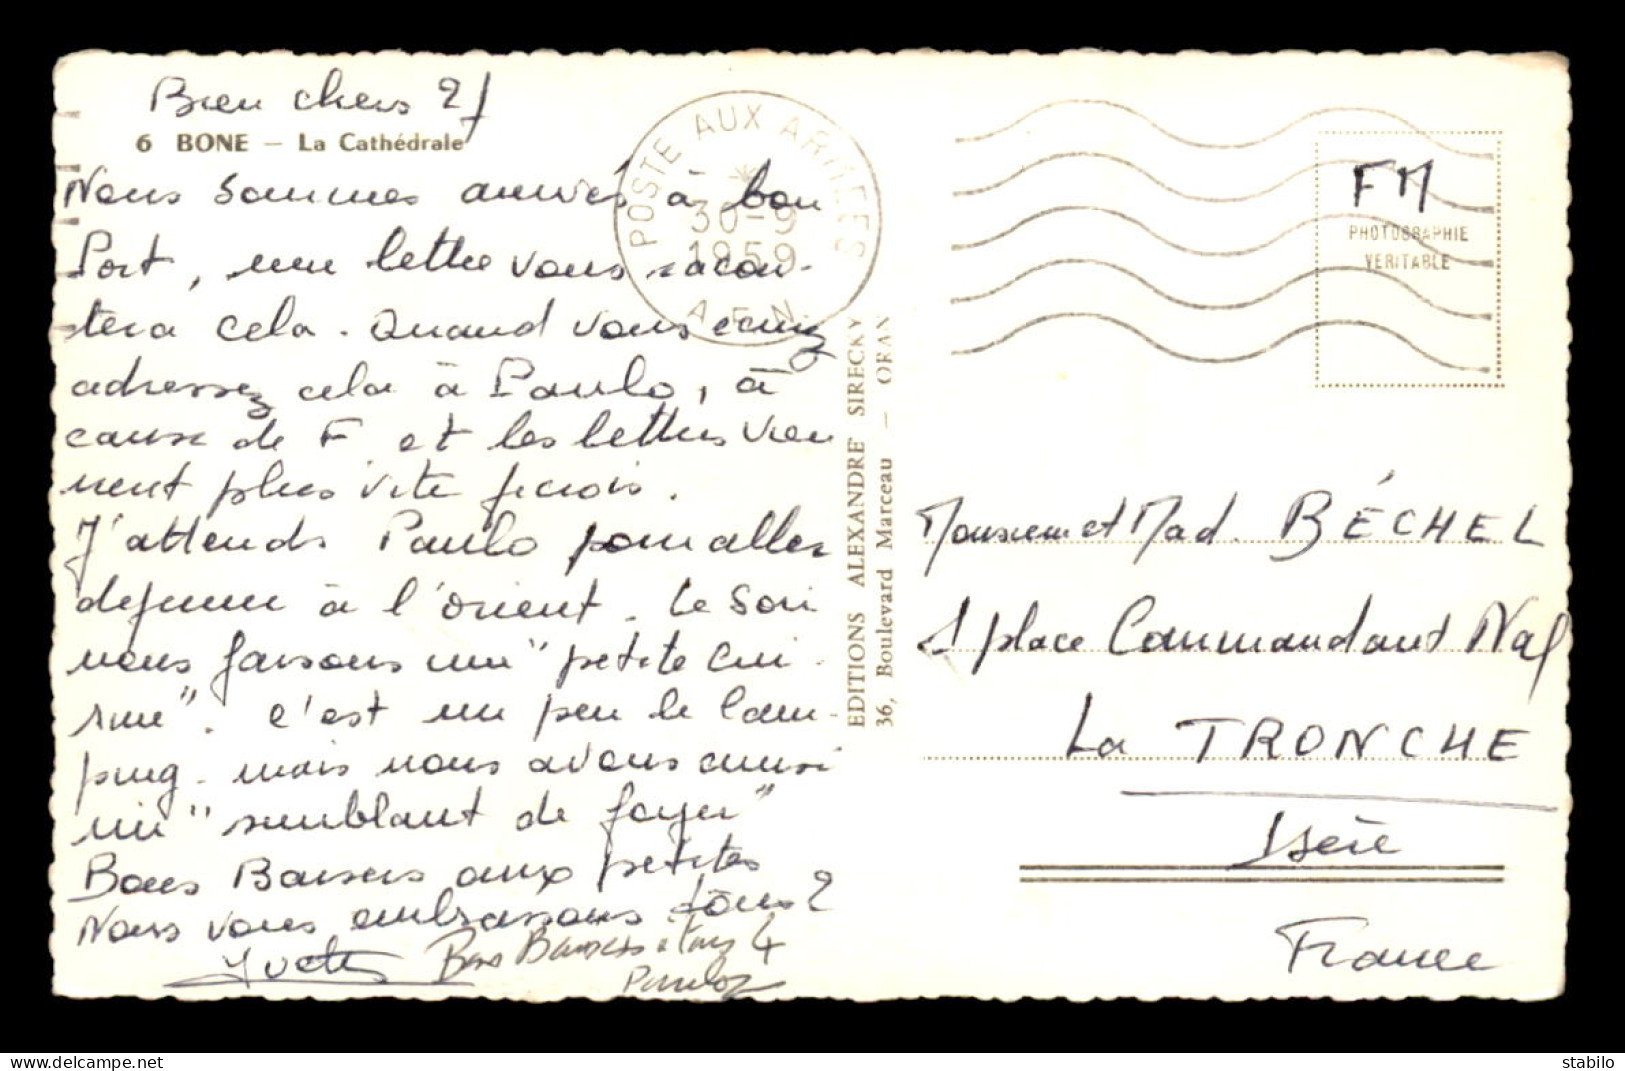 Bien chers 2
6 BONE — La Cathédrale
Nous sommes arrivés à bon
Port, une lettre vous racon-
tera cela. Quand vous écrivez
adressez cela à Paulo, à
cause de F. et les lettres vien
nent plus vite je crois.
J'attends Paulo pour aller
dejeuner à l'orient. Le soir
nous faisons une "petite cui-
sine". c'est un peu le cam-
ping - mais nous avons aussi
un "semblant de foyer"
Bons Baisers aux petites
Nous vous embrassons tous 2
Yvette
Bons Baisers à tous 4
Paulo
POSTE AUX ARMEES
30-9
1959
A.F.N
EDITIONS ALEXANDRE SIRECKY
36, Boulevard Marceau — ORAN
FM
PHOTOGRAPHIE
VERITABLE
Monsieur et Mad. BÉCHEL
1 place Commandant Nal
La TRONCHE
Isère
France
stabilo